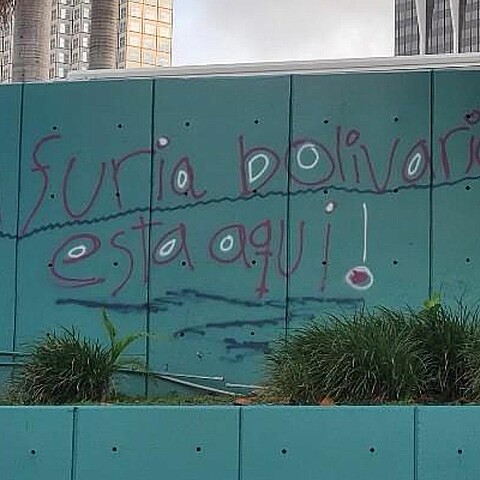 furia bolivari
esta aqui!